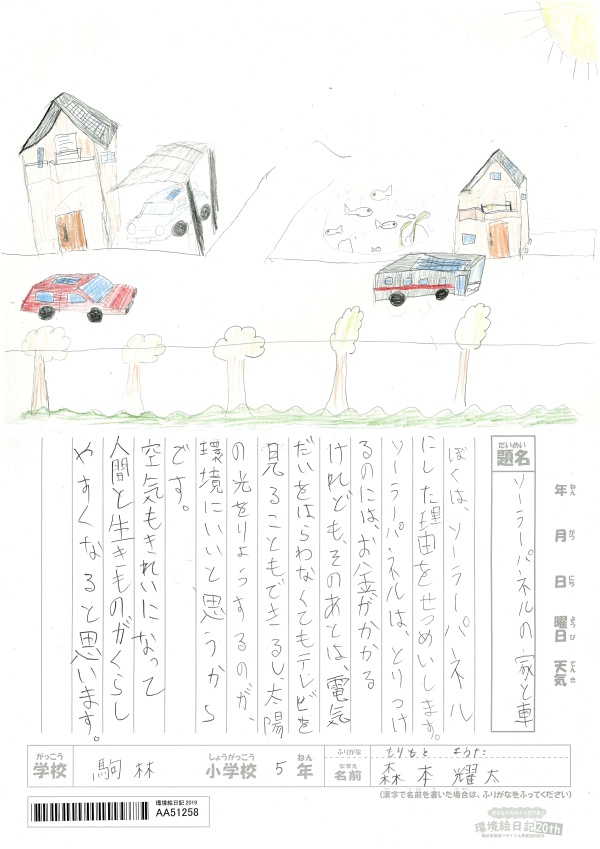 だいめい
題名
ソーラーパネルの家と車
年 ねん
月 がつ
日 にち
曜日 ようび
天気 てんき
ぼくは、ソーラーパーネル
にした理由をせつめいします。
ソーラーパーネルは、とりつけ
るのには、お金がかかる
けれども、そのあとは、電気
だいをはらわなくてもテレビを
見ることもできるし、太陽
の光をりようするのが、
環境にいいと思うから
です。
空気もきれいになって
人間と生きものがくらし
やすくなると思います。
がっこう
学校
駒林
しょうがっこう
小学校
5
ねん
年
ふりがな
もりもと ようた
なまえ
名前
森本 耀太
(漢字で名前を書いた場合は、ふりがなをふってください)
環境絵日記 2019
AA51258
環境絵日記20th